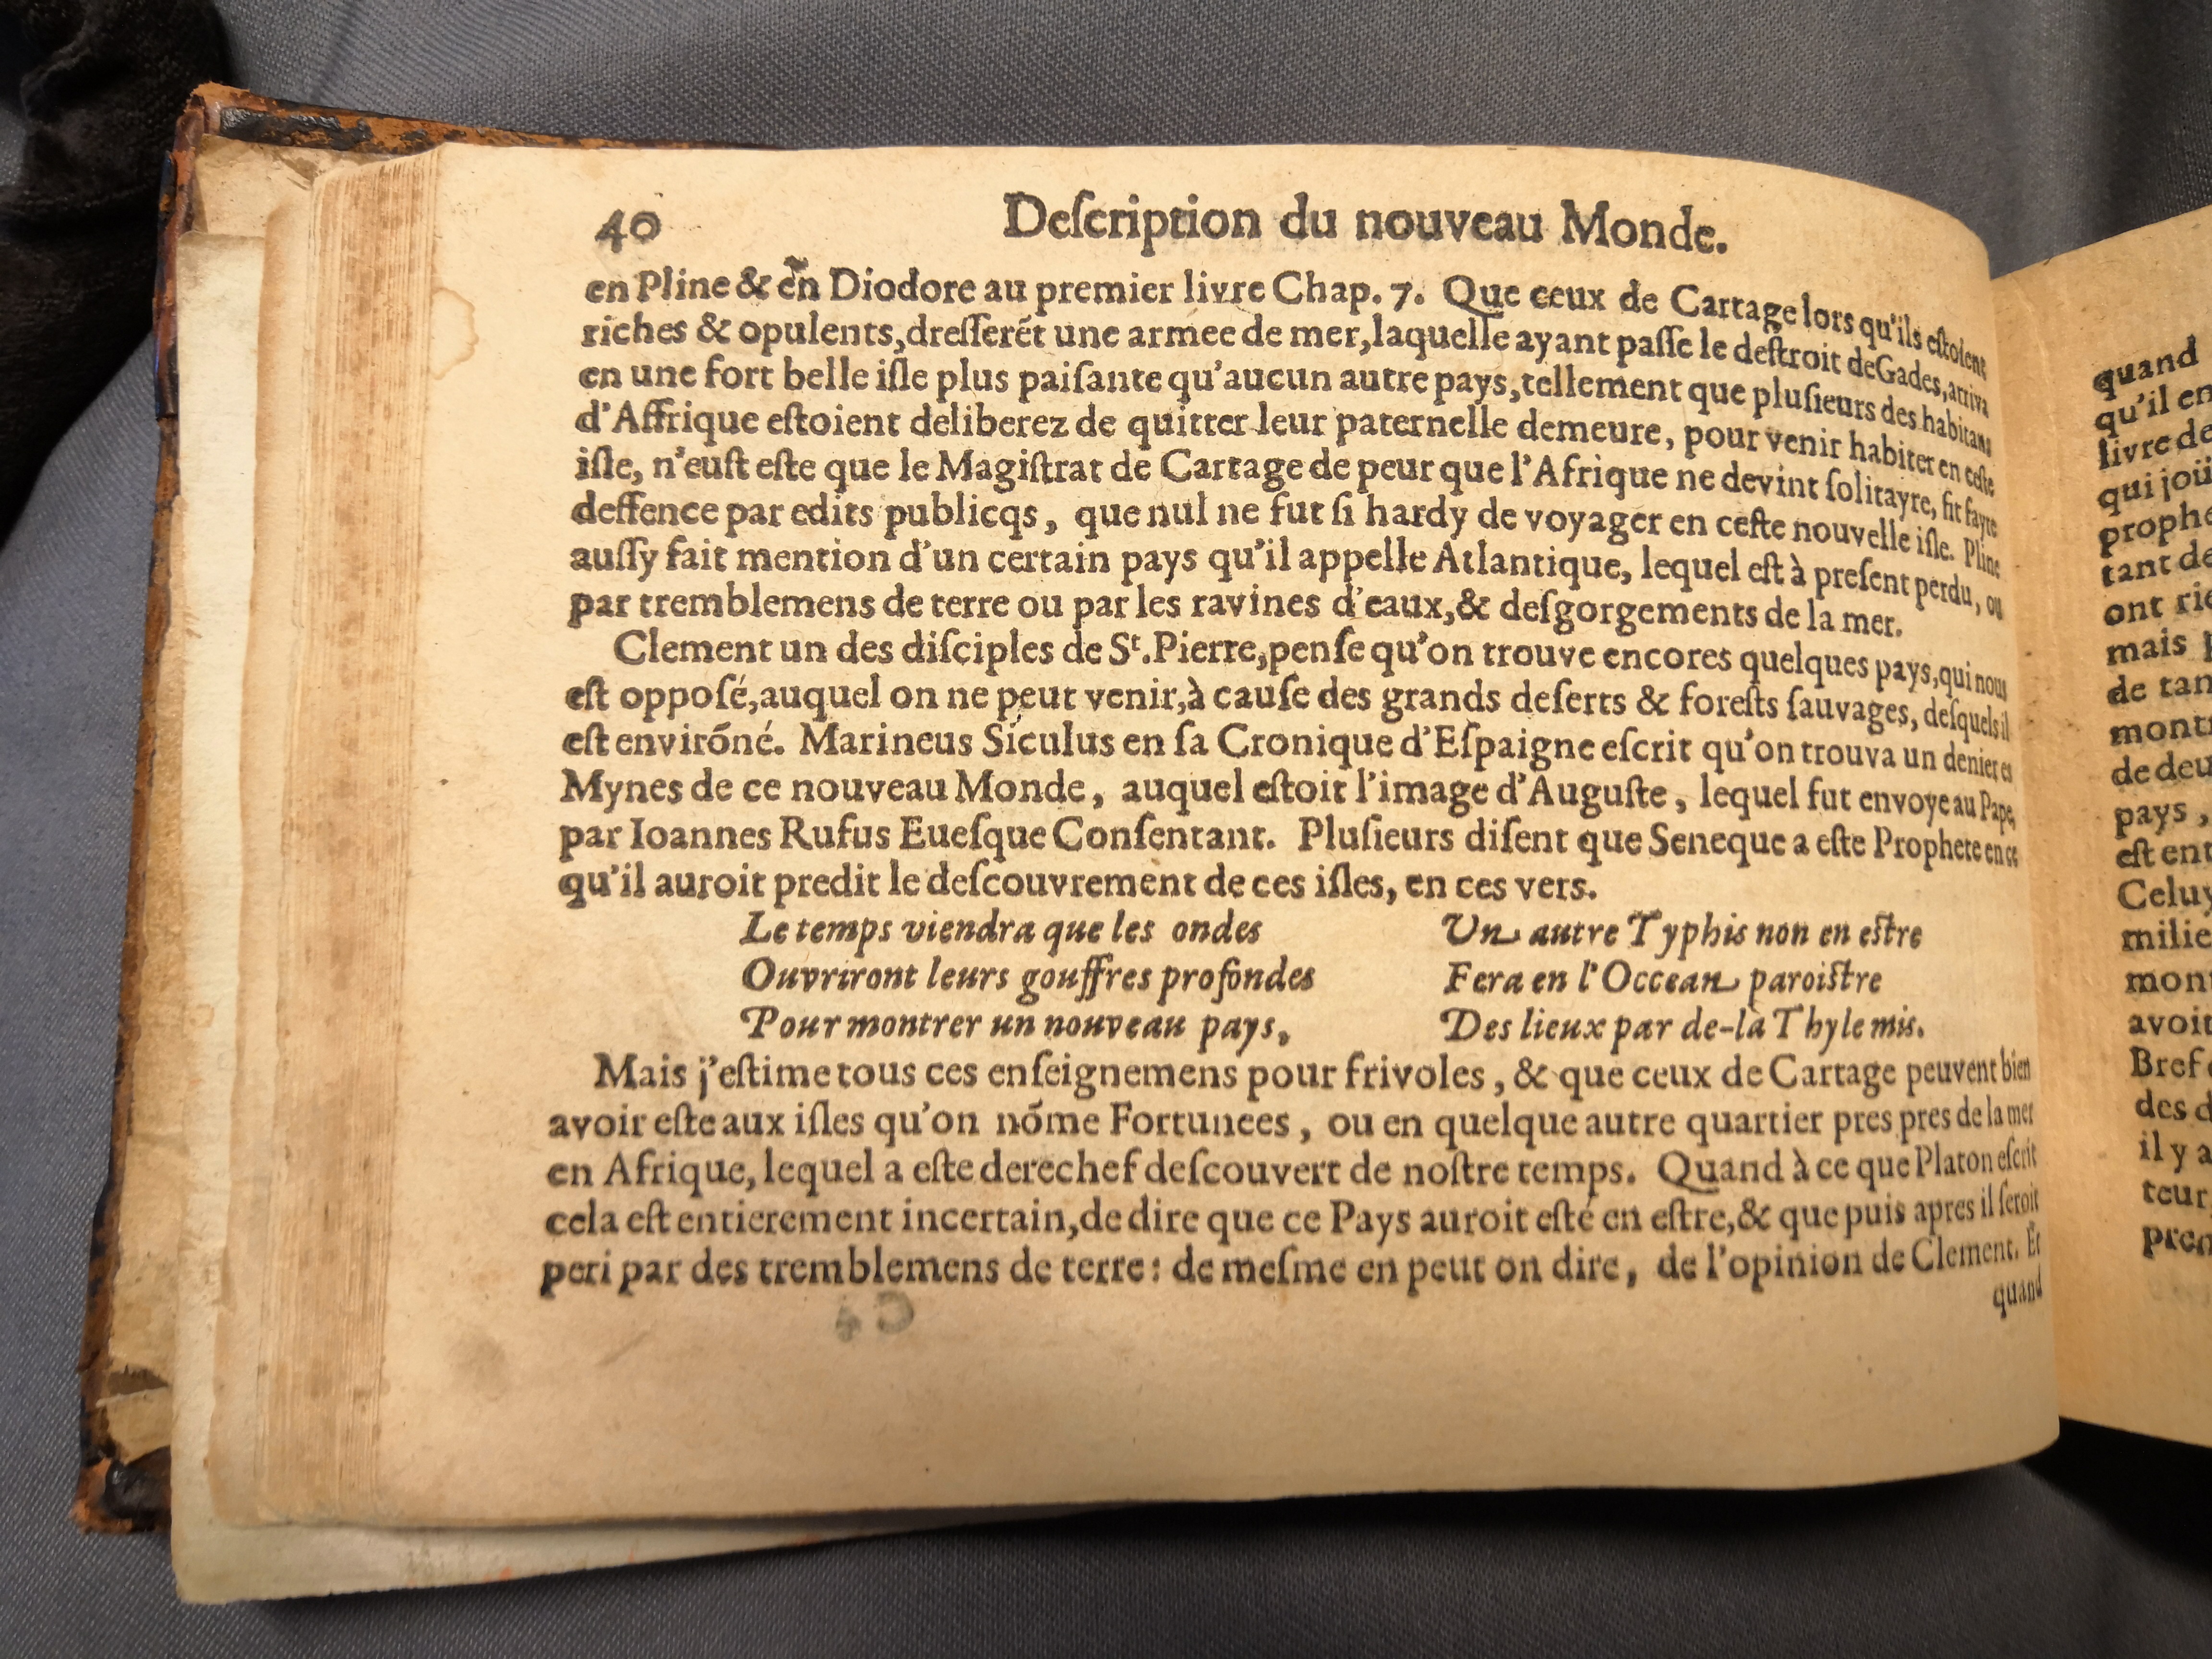 40 Deſcription du nouveau Monde.
en Pline & en Diodore au premier livre Chap. 7. Que ceux de Cartage lors qu'ils eſtoient
riches & opulents, dreſſerẽt une armee de mer, laquelle ayant paſſe le deſtroit de Gades, arriva
en une fort belle iſle plus paiſante qu'aucun autre pays, tellement que pluſieurs des habitans
d'Affrique eſtoient deliberez de quitter leur paternelle demeure, pour venir habiter en ceſte
iſle, n'euſt eſte que le Magiſtrat de Cartage de peur que l'Afrique ne devint ſolitayre, fit fayre
deffence par edits publicqs, que nul ne fut ſi hardy de voyager en ceſte nouvelle iſle. Pline
auſſy fait mention d'un certain pays qu'il appelle Atlantique, lequel eſt à preſent perdu, ou
par tremblemens de terre ou par les ravines d'eaux, & deſgorgements de la mer.
Clement un des diſciples de St. Pierre, penſe qu'on trouve encores quelques pays, qui nous
eſt oppoſé, auquel on ne peut venir, à cauſe des grands deſerts & foreſts ſauvages, deſquels il
eſt envirõné. Marineus Siculus en ſa Cronique d'Eſpaigne eſcrit qu'on trouva un denier es
Mynes de ce nouveau Monde, auquel eſtoit l'image d'Auguſte, lequel fut envoye au Pape,
par Ioannes Rufus Eueſque Conſentant. Pluſieurs diſent que Seneque a eſte Prophete en ce
qu'il auroit predit le deſcouvrement de ces iſles, en ces vers.
Le temps viendra que les ondes
Ouvriront leurs gouffres profondes
Pour montrer un nouveau pays,
Un autre Typhis non en eſtre
Fera en l'Occean paroiſtre
Des lieux par de-là Thyle mis.
Mais j'eſtime tous ces enſeignemens pour frivoles, & que ceux de Cartage peuvent bien
avoir eſte aux iſles qu'on nõme Fortunees, ou en quelque autre quartier pres pres de la mer
en Afrique, lequel a eſte derechef deſcouvert de noſtre temps. Quand à ce que Platon eſcrit
cela eſt entierement incertain, de dire que ce Pays auroit eſté en eſtre, & que puis apres il ſeroit
peri par des tremblemens de terre: de meſme en peut on dire, de l'opinion de Clement. Et
quand
quand
qu'il en
livre de
qui joü
tant de
mais
de tan
pays,
eſt ent
Celuy
avoit
Bref
il y a